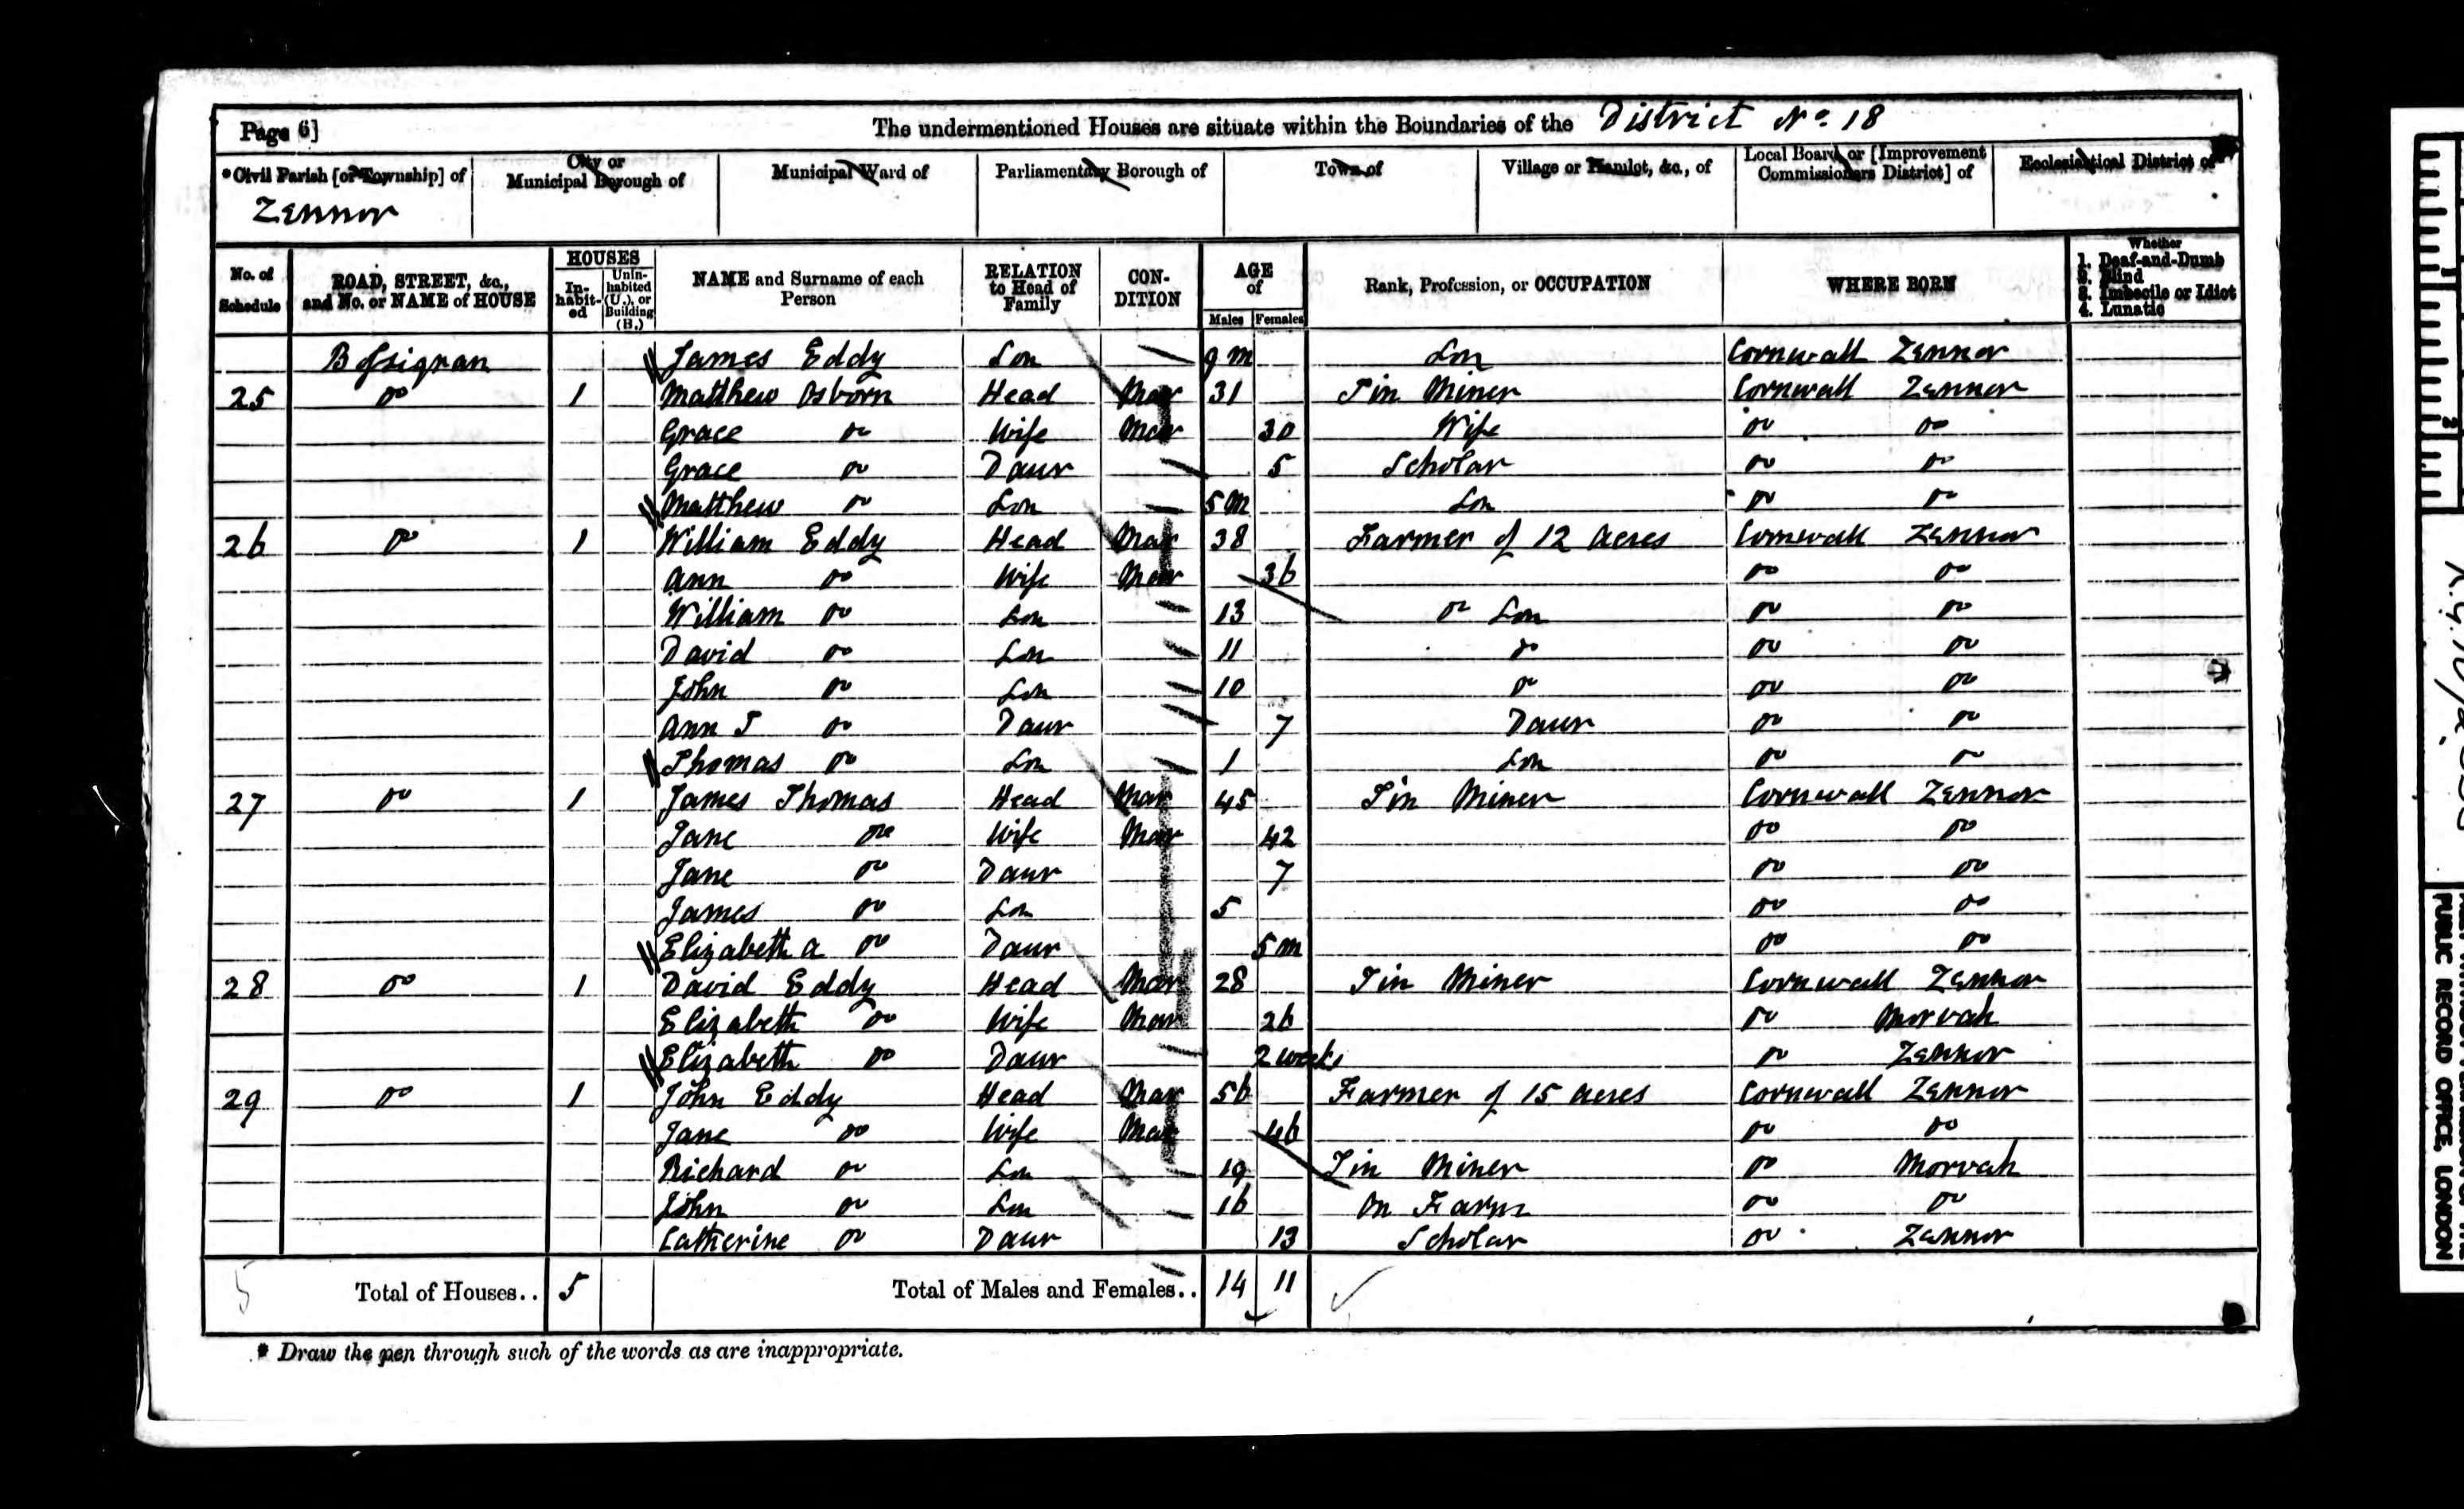 Page 6] The undermentioned Houses are situate within the Boundaries of the District No. 18
*Civil Parish [or Township] of City or Municipal Borough of Municipal Ward of Parliamentary Borough of Town of Village or Hamlet, &c., of Local Board, or [Improvement Commissioners District] of Ecclesiastical District of
Zennor
No. of Schedule ROAD, STREET, &c., and No. or NAME of HOUSE HOUSES In-habit-ed Unin-habited (U.), or Building (B.) NAME and Surname of each Person RELATION to Head of Family CON-DITION AGE of Males Females Rank, Profession, or OCCUPATION WHERE BORN Whether 1. Deaf-and-Dumb 2. Blind 3. Imbecile or Idiot 4. Lunatic
Bossignan James Eddy Son 9 m Son Cornwall Zennor
25 Do 1 Matthew Osborn Head Mar 31 Tin Miner Cornwall Zennor
Grace Do Wife Mar 30 Wife Do Do
Grace Do Daur 5 Scholar Do Do
Matthew Do Son 5 M Son Do Do
26 Do 1 William Eddy Head Mar 38 Farmer of 12 Acres Cornwall Zennor
Ann Do Wife Mar 36 Do Do
William Do Son 13 Do Son Do Do
David Do Son 11 Do Do Do
John Do Son 10 Do Do Do
Ann T Do Daur 7 Daur Do Do
Thomas Do Son 1 Son Do Do
27 Do 1 James Thomas Head Mar 45 Tin Miner Cornwall Zennor
Jane Do Wife Mar 42 Do Do
Jane Do Daur 7 Do Do
James Do Son 5 Do Do
Elizabeth A Do Daur 5 m Do Do
28 Do 1 David Eddy Head Mar 28 Tin Miner Cornwall Zennor
Elizabeth Do Wife Mar 26 Do Morvah
Elizabeth Do Daur 2 weeks Do Zennor
29 Do 1 John Eddy Head Mar 56 Farmer of 15 Acres Cornwall Zennor
Jane Do Wife Mar 46 Do Do
Richard Do Son 19 Tin Miner Do Morvah
John Do Son 16 On Farm Do Do
Catherine Do Daur 13 Scholar Do Zennor
5 Total of Houses.. 5 Total of Males and Females.. 14 11
* Draw the pen through such of the words as are inappropriate.
PUBLIC RECORD OFFICE, LONDON